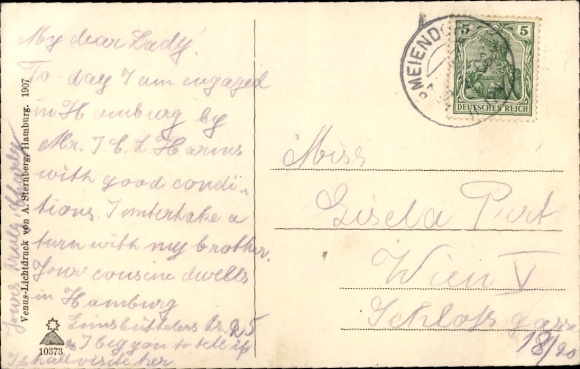 My dear Lady!
To-day I am engaged
in Hamburg by
Mr. J C L Harms
with good condi-
tions. I untertake a
turn with my brother.
Your cousine dwells
in Hamburg
Eimsbüttlers tr. 25
I beg you to tell if
I shall visite her
Yours truly Charley
Venus-Lichtdruck von A. Sternberg, Hamburg. 1907
10373
MEIENDO
5 5
DEUTSCHES REICH
Miss
Gisela
Wien V
Schloß
18/20